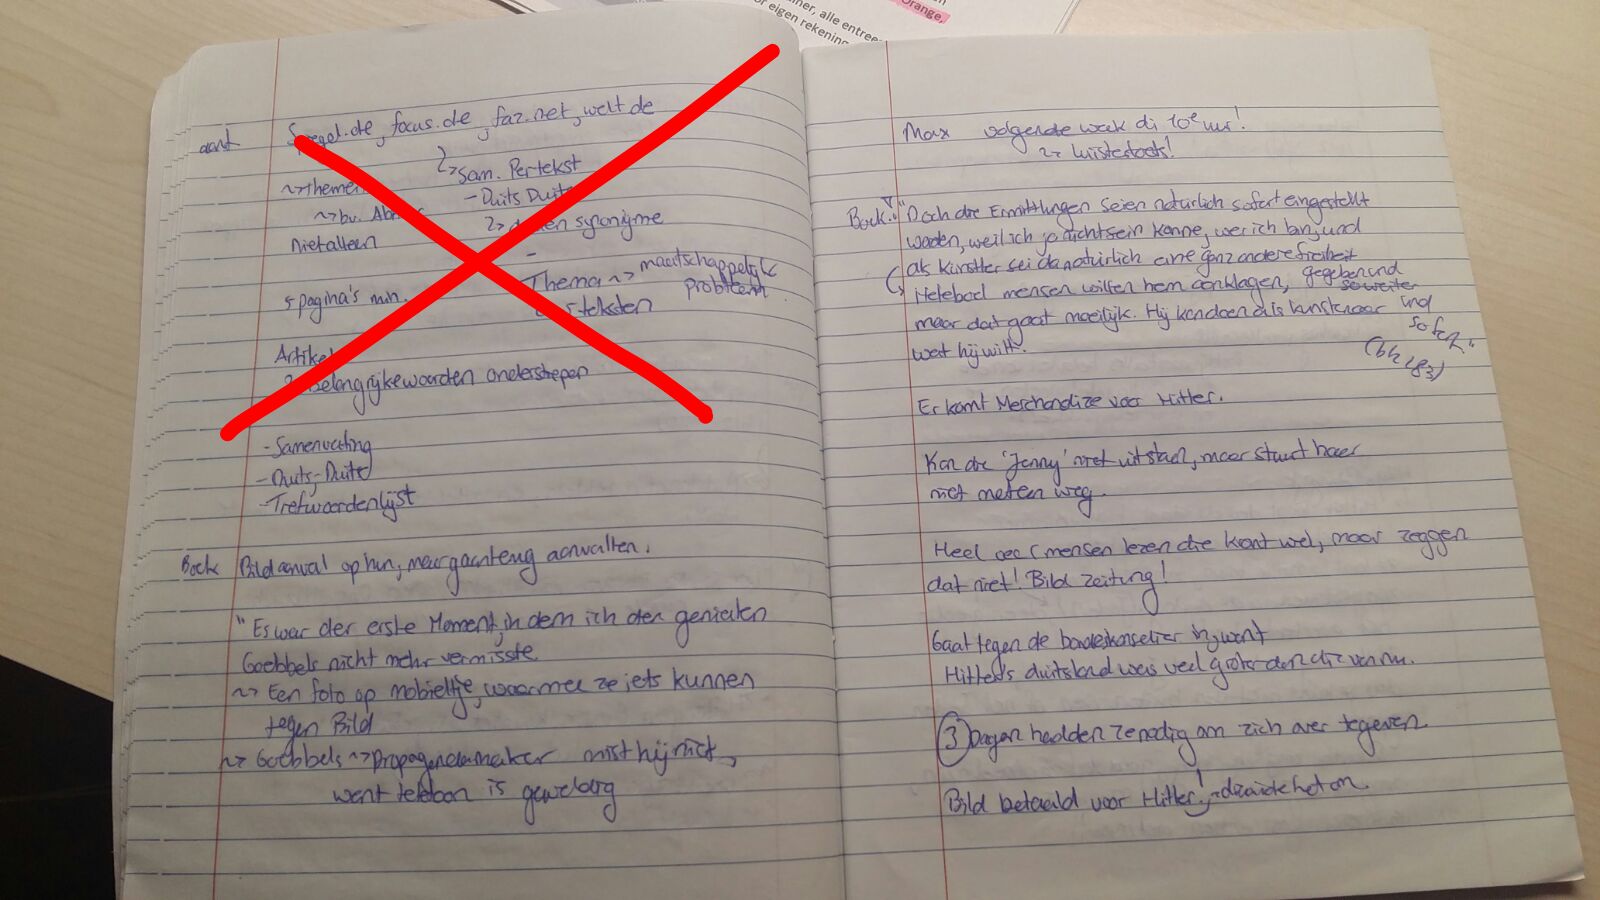 Orange,
ner, alle entree
or eigen rekening
aant Spiegel.de, focus.de, faz.net, welt.de
↳ Sam. Per tekst
~> Themen
- Duits Duits
~> bv.
synonyme
Niet alleen
-
Thema ~> maatschappelijk
probleem
5 pagina's min.
5 teksten
Artikel
belangrijke woorden onderstrepen
- Samenvatting
- Duits-Duits
- Trefwoordenlijst
Boek Bild aanval op hun, maar gaan terug aanvallen.
"Es war der erste Moment, in dem ich den genialen
Goebbels nicht mehr vermisste.
~> Een foto op mobieltje, waarmee ze iets kunnen
tegen Bild
~> Goebbels ~> Propagandamaker mist hij niet,
want telefoon is geweldig
Max volgende week di 10e uur!
~> luistertoets!
Boek: "Doch die Ermittlungen seien natürlich sofort eingestellt
worden, weil ich ja nicht sein könne, wer ich bin, und
als Künstler sei da natürlich eine ganz andere Freiheit
gegeben und
so weiter
und
so fort."
(blz 183)
Heleboel mensen willen hem aanklagen,
maar dat gaat moeilijk. Hij kan doen als kunstenaar
wat hij wilt.
Er komt Merchandize voor Hitler.
Kan die 'Jenny' niet uitstaan, maar stuurt haar
niet meteen weg.
Heel veel mensen lezen die krant wel, maar zeggen
dat niet! Bild Zeitung!
Gaat tegen de bondeskanselier in, want
Hitler's duitsland was veel groter dan die van nu.
3 Dagen hadden ze nodig om zich over te geven.
Bild betaald voor Hitler!, draaide het om.